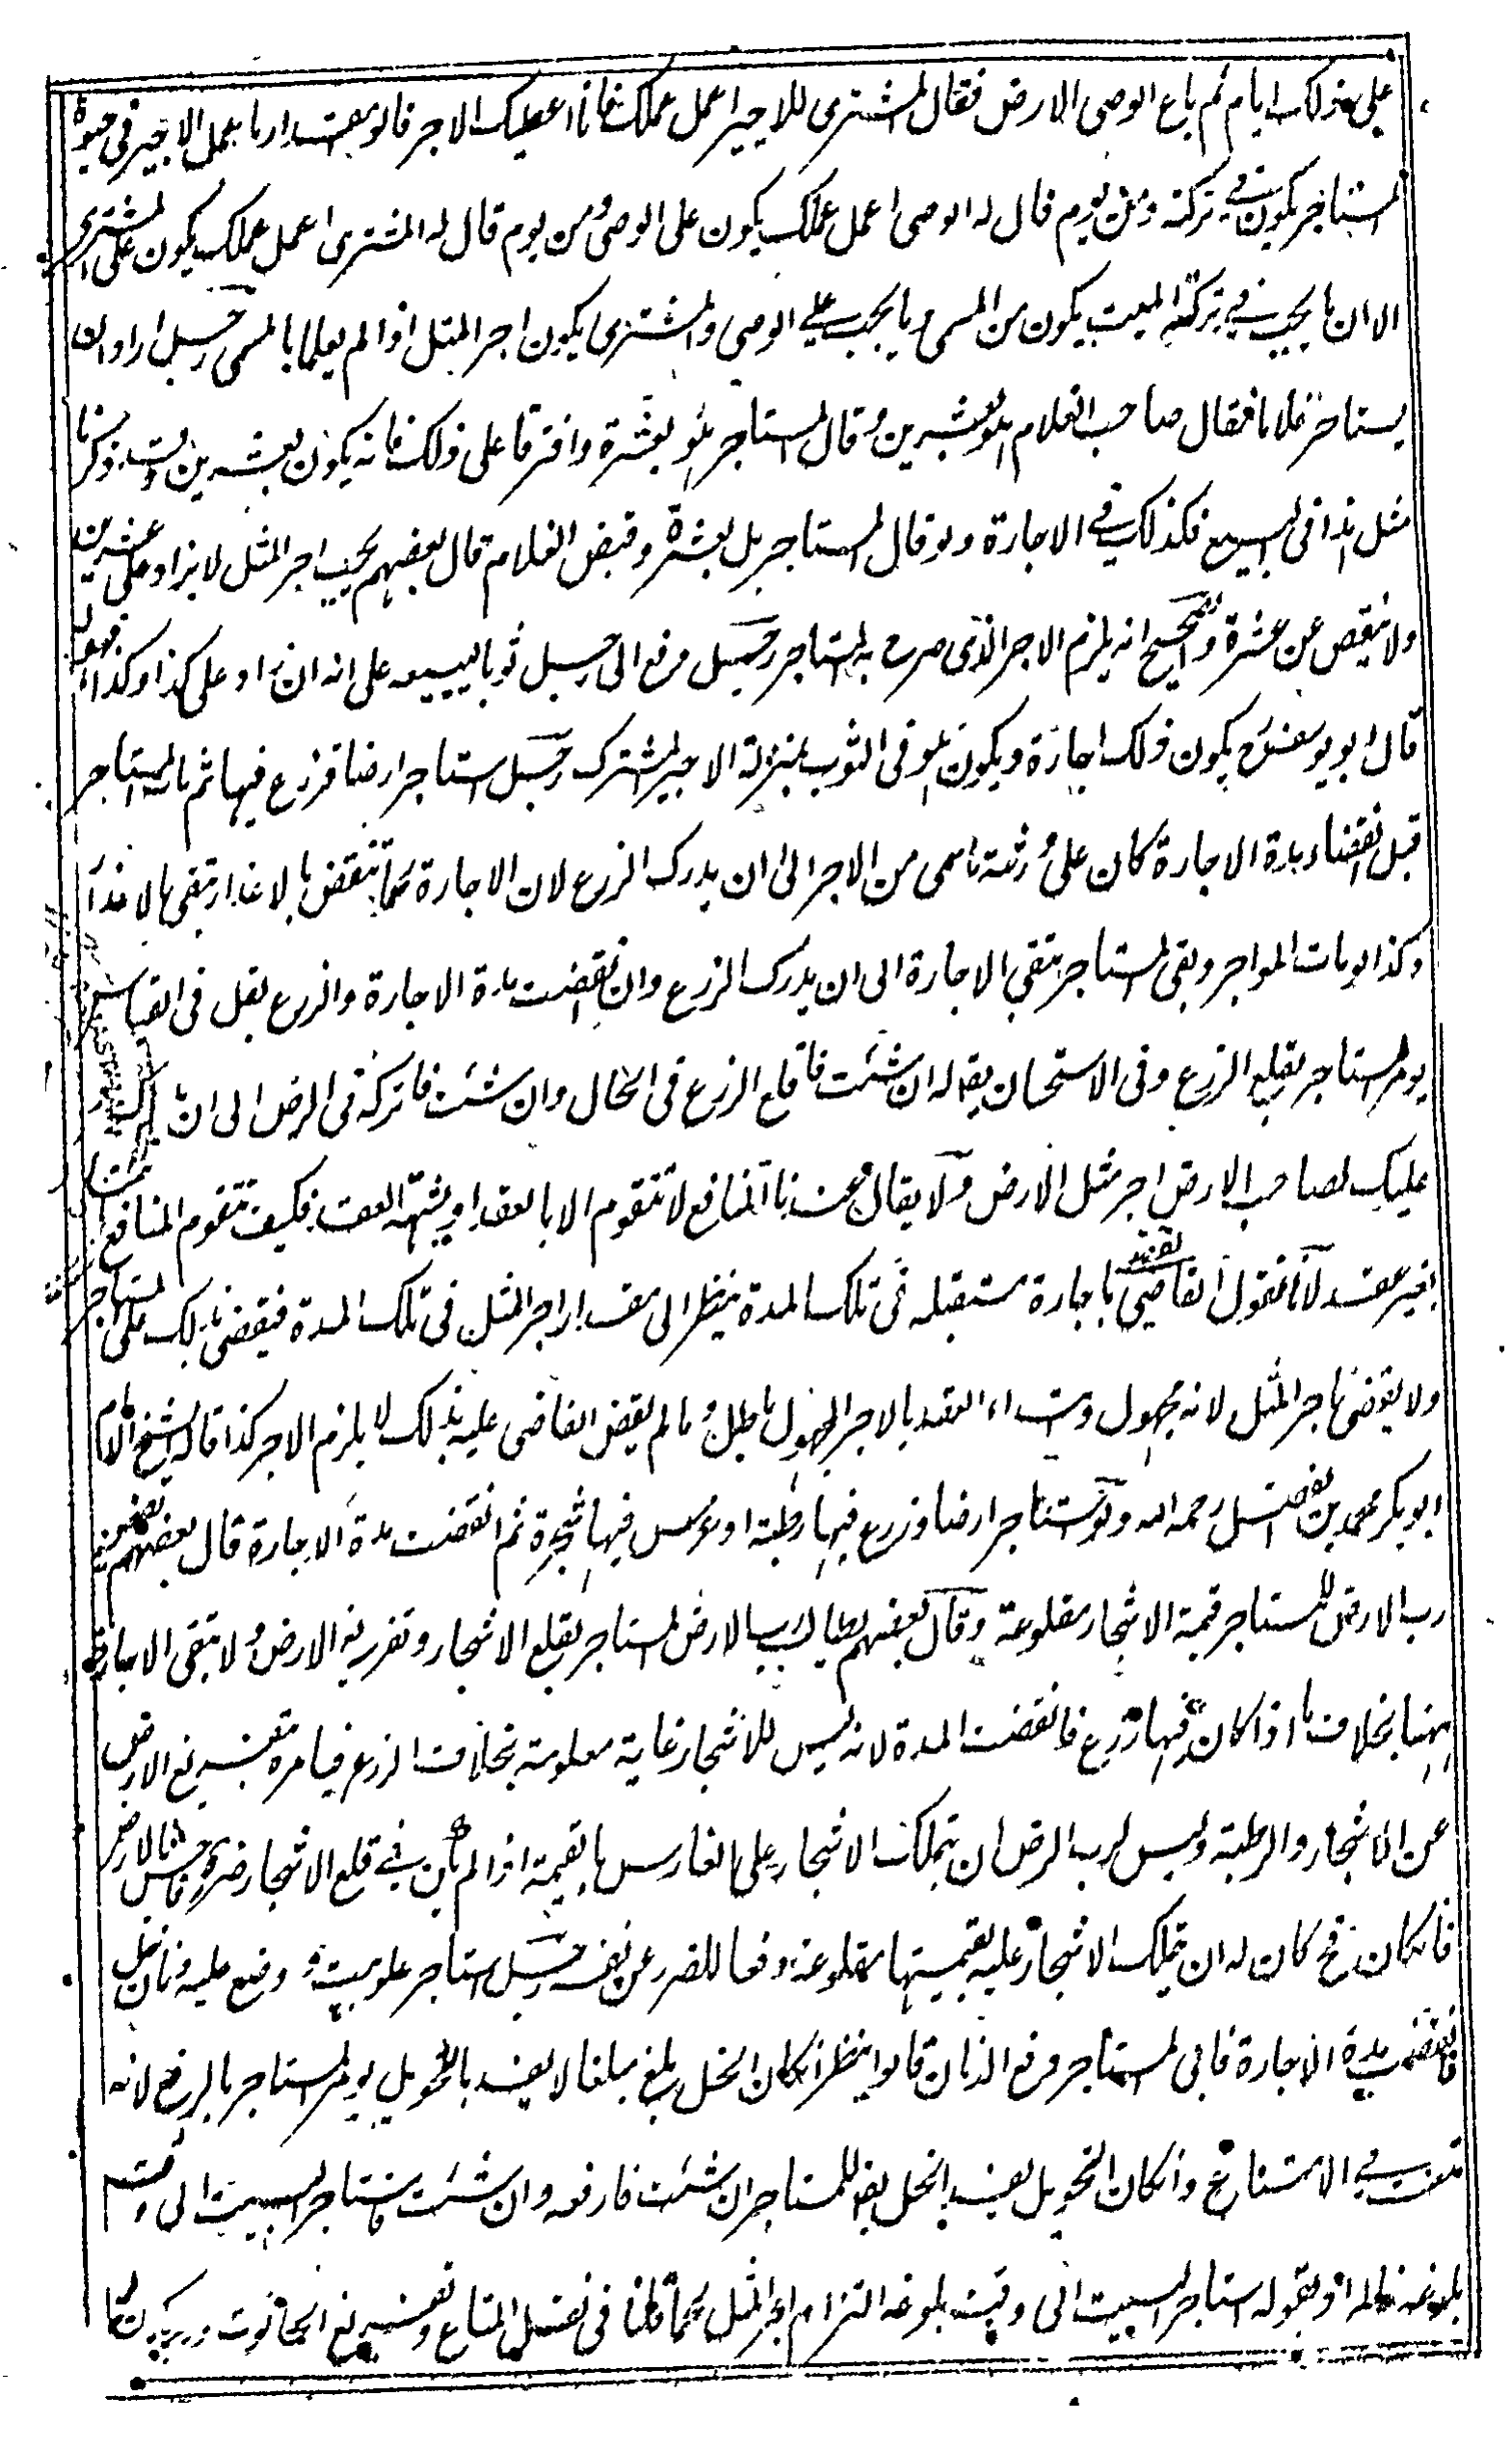 على ذلك ايام ثم باع الوصى الارض فقال المشترى للاجير اعمل عملك فانا اعطيك الاجر قالوا مقدار ما عمل الاجير فى حيوة
المستاجر يكون فى تركته ومن يوم قال له الوصى اعمل عملك يكون على الوصى ومن يوم قال له المشترى اعمل عملك يكون على المشترى
الا ان ما يجب فى تركة الميت يكون من المسمى وما يجب على الوصى والمشترى يكون اجر المثل اذا لم يعلما بالمسمى رجل اراد ان
يستاجر غلاما فقال صاحب الغلام هو بعشرين وقال المستاجر هو بعشرة وافترقا على ذلك فانه يكون بعشرين وقد ذكرنا
مثل هذا فى البيع فكذلك فى الاجارة ولو قال المستاجر بل بعشرة وقبض الغلام قال بعضهم يجب اجر المثل لا يزاد على عشرين
ولا ينقص عن عشرة والصحيح انه يلزم الاجر الذى صرح به المستاجر رجل دفع الى رجل ثوبا ليبيعه على انه ان زاد على كذا وكذا فهو له
قال ابو يوسف رح يكون ذلك اجارة ويكون هو فى الثوب بمنزلة الاجير المشترك رجل استاجر ارضا فزرع فيها ثم مات المستاجر
قبل انقضاء مدة الاجارة كان على ورثته ما سمى من الاجر الى ان يدرك الزرع لان الاجارة كما تنتقض بالاعذار تبقى بالاعذار
وكذا لو مات المواجر وبقى المستاجر تبقى الاجارة الى ان يدرك الزرع وان انقضت مدة الاجارة والزرع بقل فى القياس
يومر المستاجر بقلع الزرع وفى الاستحسان يقال له ان شئت فاقلع الزرع فى الحال وان شئت فاتركه فى الارض الى ان يدرك و
عليك لصاحب الارض اجر مثل الارض ولا يقال عندنا المنافع لا تتقوم الا بالعقد او بشبهة العقد فكيف تتقوم المنافع
بغير عقد لانا نقول القاضى يعقد باجارة مستقبلة فى تلك المدة ينظر الى مقدار اجر المثل فى تلك المدة فيقضى بذلك على المستاجر
ولا يقضى باجر المثل لانه مجهول وابتداء العقد بالاجر المجهول باطل وما لم يقض القاضى عليه بذلك لا يلزم الاجر كذا قال الشيخ الامام
ابو بكر محمد بن الفضل رحمه الله ولو استاجر ارضا وزرع فيها رطبة او غرس فيها شجرة ثم انقضت مدة الاجارة قال بعضهم يضمن
رب الارض للمستاجر قيمة الاشجار مقلوعة وقال بعضهم يطالب رب الارض المستاجر بقلع الاشجار وتفريغ الارض ولا تبقى الاجارة
ههنا بخلاف ما اذا كان فيها زرع فانقضت المدة لانه ليس للاشجار غاية معلومة بخلاف الزرع فيامره بتفريغ الارض
عن الاشجار والرطبة وليس لرب الارض ان يتملك الاشجار على الغارس بالقيمة اذا لم يكن فى قلع الاشجار ضرر فاحش بالارض
فان كان رح كان له ان يتملك الاشجار عليه بقيمتها مقلوعة دفعا للضرر عن نفسه رجل استاجر علو بيت ووضع عليه دنان خل
فانقضت مدة الاجارة فابى المستاجر رفع الدنان قالوا ينظر ان كان الخل بلغ مبلغا لا يفسد بالتحويل يومر المستاجر بالرفع لانه
متعنت فى الامتناع وان كان التحويل يفسد الخل يقال للمستاجر ان شئت فارفعه وان شئت فاستاجر البيت الى وقت
بلوغه ... اذ بقوله استاجر البيت الى وقت بلوغه التزام اجر المثل كما قلنا فى نقل المتاع وتفريغ الحانوت